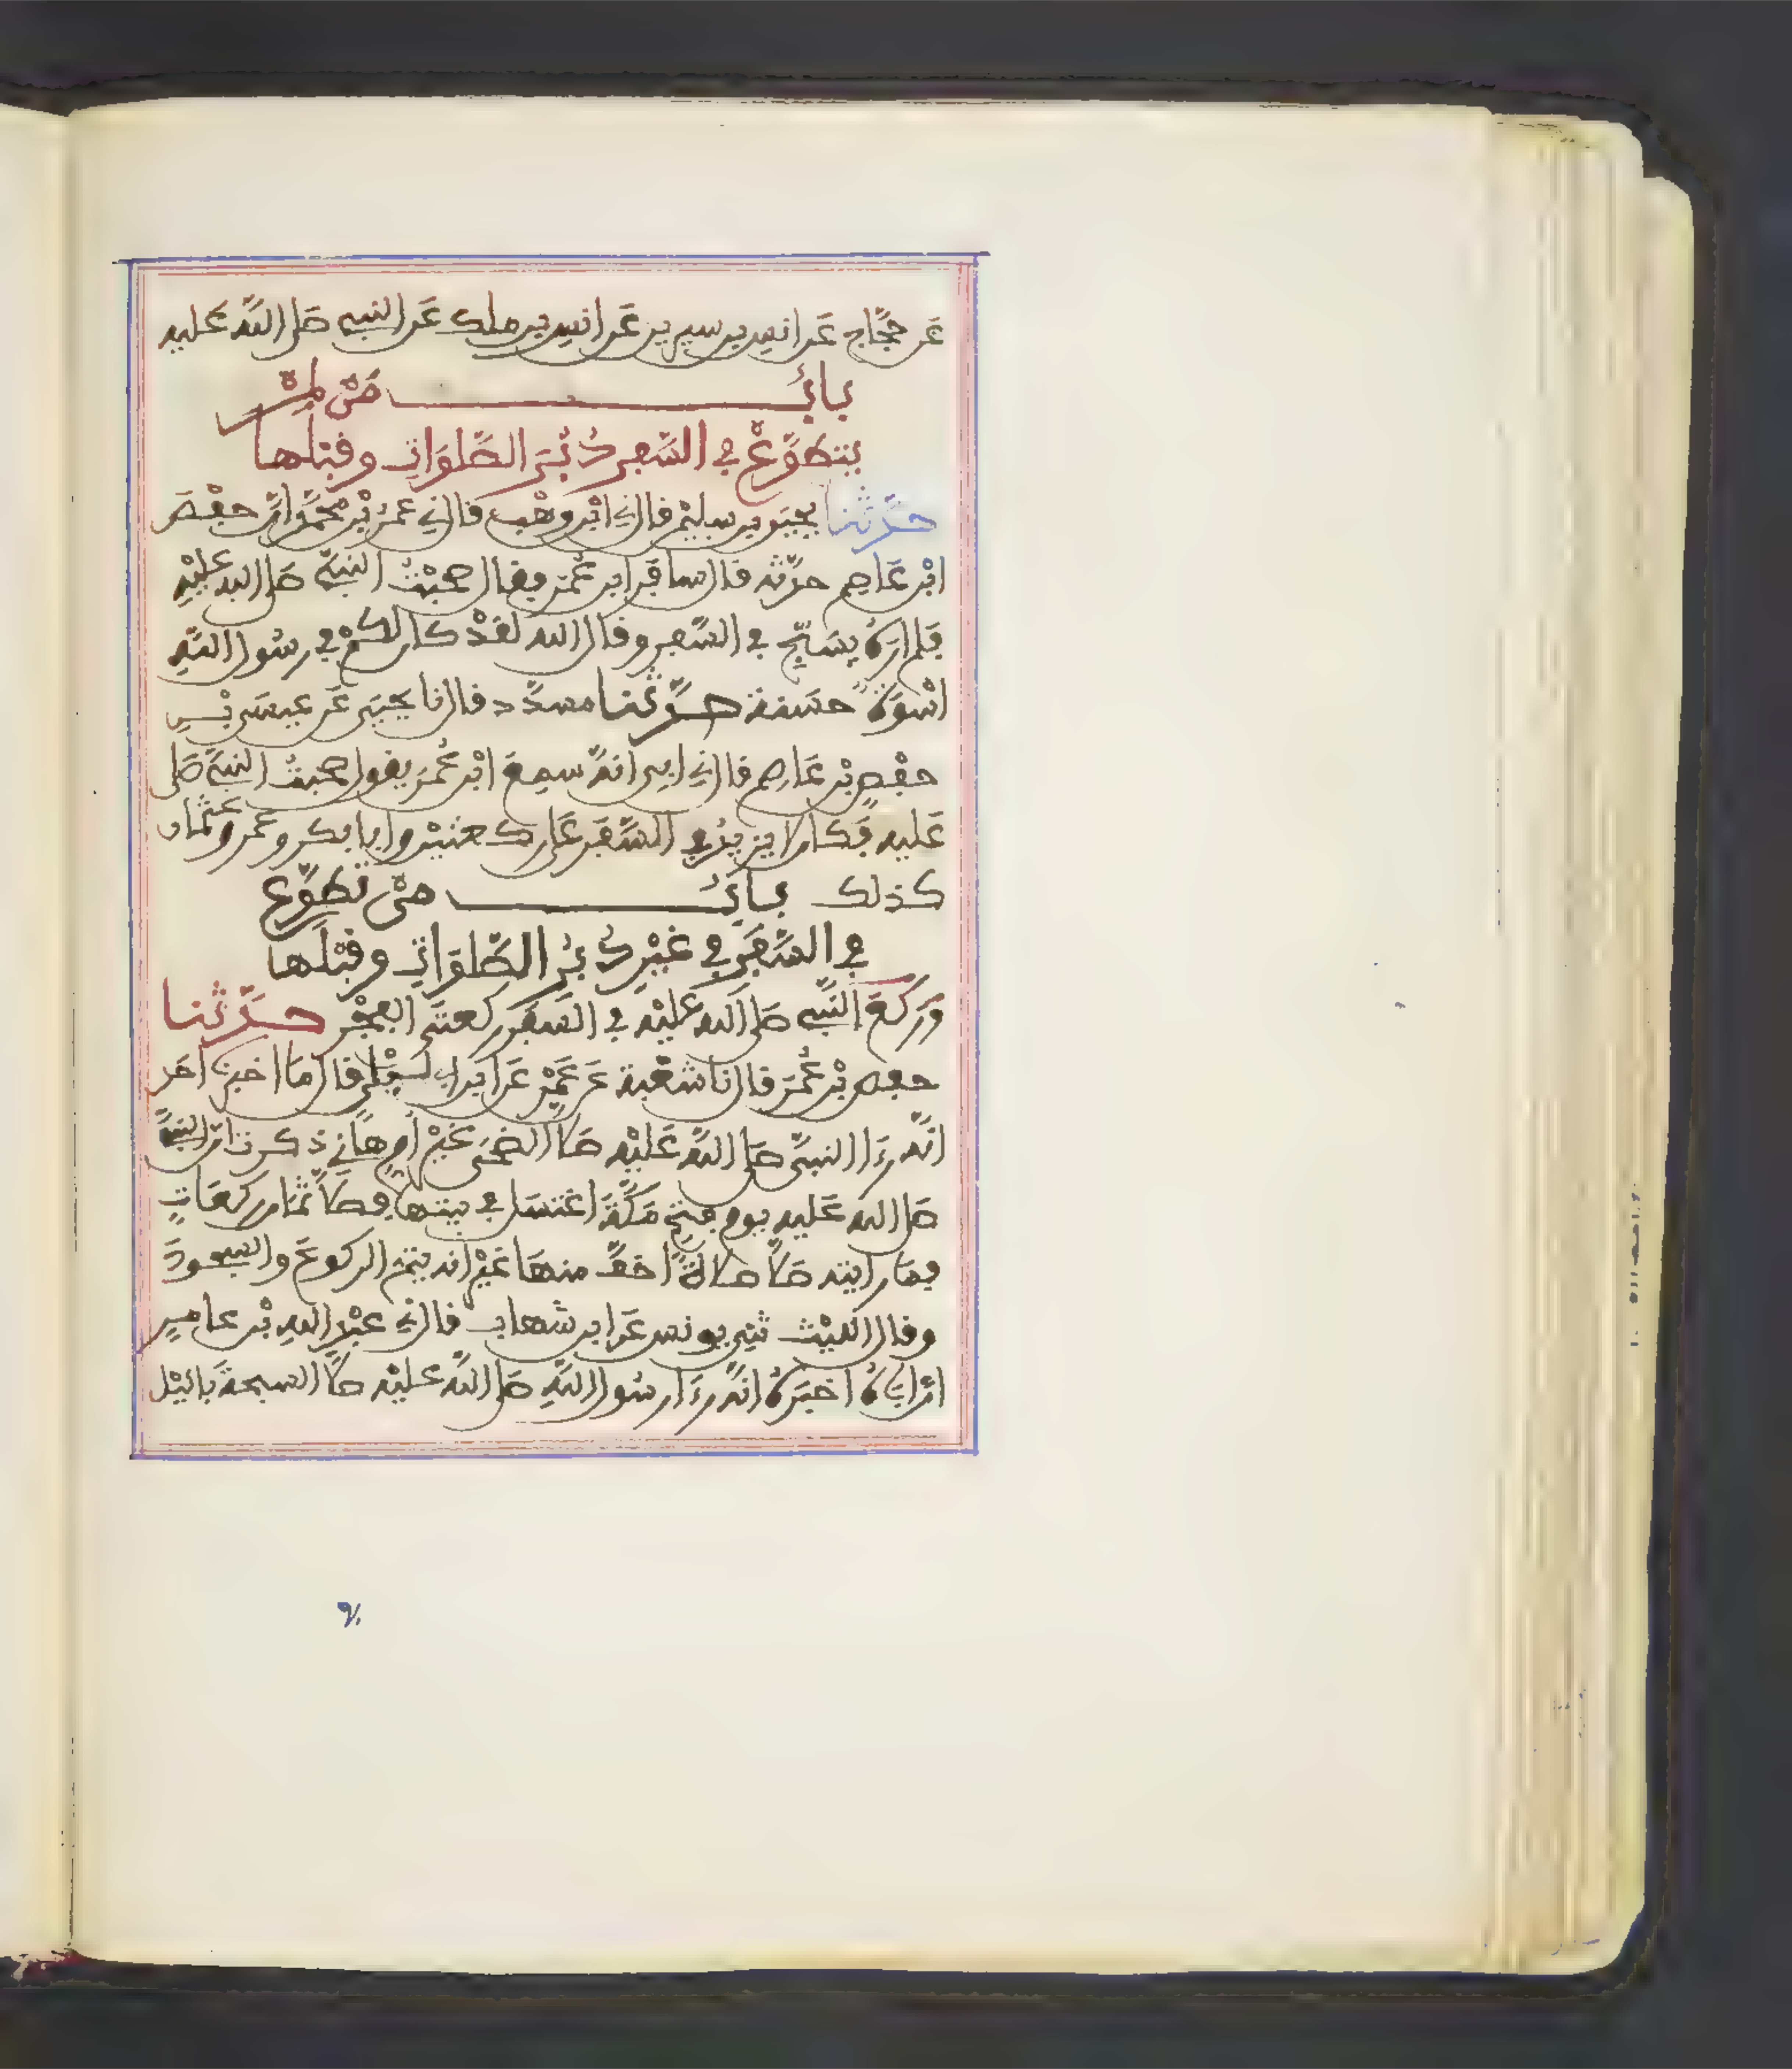 عَن حَجَّاج عَن انسِ بن سيرين عَن انسِ بن ملك عَن النبي صَلى اللَّه عَليه
بـابُ مَنْ لمْ
يتطوَّعْ في السَّفر دُبُرَ الصَّلوَاتِ وقبلها
حدَّثنا يحيى بن سليمٰن قال ني ابْن وهْب قال ني عمَرُ بْن محمَّد ان حفْصَ
ابْن عَاصم حدَّثه قال سافر ابن عُمَر فقال صحبْتُ النبيَّ صَلى الله عليْهِ
فلم ارَهُ يسَبّح في السَّفر وقال الله لقَدْ كان لكمْ في رسُول اللَّهِ
اسْوَةٌ حسَنة حدَّثنا مسدَّد قال نا يحيى عَن عيسَى بْـنِ
حفْصِ بْن عَاصم قال ني ابي انهُ سمعَ ابْن عُمَر يقول صحبتُ النبيَّ صَلى
عَليه فَكان لا يزيدُ في السَّفَر عَلى ركعتيْن وابا بكر وعمر وعثمان
كذلك بـابُ مَنْ تطوَّع
في السَّفَر في غيْر دُبُر الصَّلوَاتِ وقبْلَها
وَركعَ النَّبي صَلى اللَّه عليْه في السَفَر ركعتي الفجْر حـدَّثنا
حفص بْن عُمَر قال نا شعْبة عَن عَمْرٍ عَن ابن ابي ليْلى قال مَا اخبرنا احَد
انَّه رَءَا النبيَّ صَلى اللَّه عَليْه صَلَّى الضحَى غيْر أم هَانِي ذكرت ان النبيَّ
صَلى الله عَليه يوم فتح مَكَّةَ اغتسَل في بيتها فصَلَّى ثمَان ركعَاتٍ
فمَا رايته صَلَّى صَلاةً اخفَّ منهَا غيْر انه يتمّ الركوعَ والسجودَ
وقال الليْث ثني يونس عَن ابن شهاب قال ني عبْد اللهِ بْن عامر
انَّ ابَاهُ اخبَرَهُ انَّه رَءَا رسُول اللَّهِ صَلى اللَّه عليْه صَلَّى السبحة باليْل